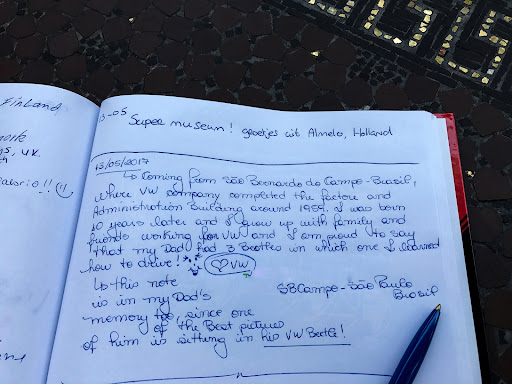 Finland
s, u.k.
13-05 Super museum! groetjes uit Almelo, Holland
13/05/2017
↳ Coming from São Bernardo do Campo - Brasil,
where VW company completed the factory and
Administration Building around 1959. I was born
10 years later and I grow up with family and
friends working for VW and I am proud to say
that my Dad had 3 Beetles in which one I learned
how to drive! ♡ VW
↳ this note
is in my Dad's
memory too, since one
of the Best pictures
of him is sitting in his VW Beetle!
SBCampo - São Paulo
Brasil